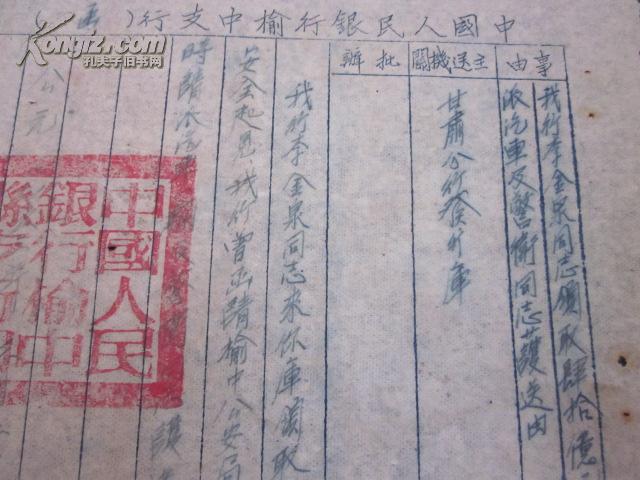 中國人民銀行榆中支行（函
事由
我行李金泉同志領取肆拾億
派汽車及警衛同志護送由
主送機關
甘肅分行發行庫
批辦
我行李金泉同志来你庫領取
安全起見我行曾函請榆中公安局
時請派汽車
護
公元
中國人民
銀行榆中
kongfz.com
孔夫子旧书网